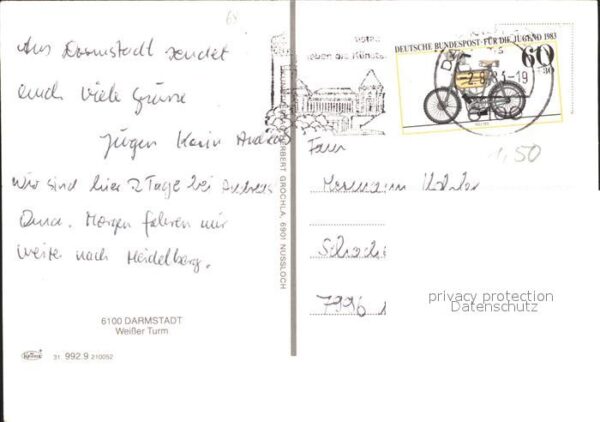 Aus Darmstadt sendet
euch viele Grüsse
Jürgen Karin Andreas
Wir sind hier 2 Tage bei Andreas
Oma. Morgen fahren wir
weiter nach Heidelberg.
6100 DARMSTADT
Weißer Turm
Krüger
31 992.9 210052
HERBERT GROCHLA, 6901 NUSSLOCH
DEUTSCHE BUNDESPOST · FÜR DIE JUGEND 1983
60
+30
-2.8. 5-19
1,50
Fam
7996
privacy protection
Datenschutz